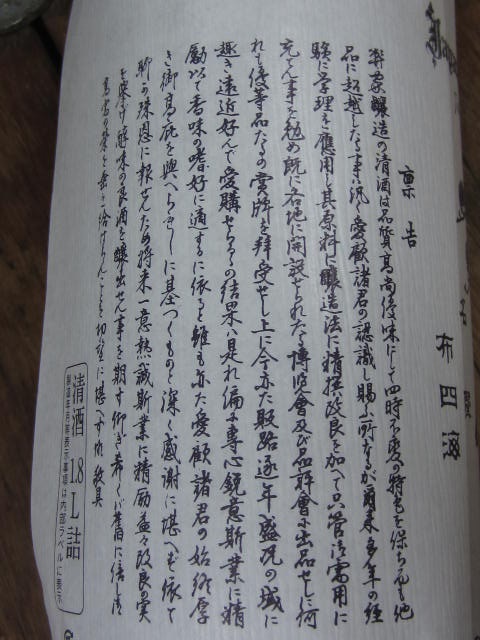 布四海
稟告
弊家醸造の清酒は品質高尚優味にして四時不変の特色を保ち尤も他
品に超越したる事は汎く愛顧諸君の認識を賜ふ所なるが爾来多年の経
験に学理を應用し其原料に醸造法に精撰改良を加へ只管御需用に
充たん事を勉め既に各地に開設せられたる博覧會及び品評會に出品せしに何
れも優等品たるの賞牌を拝受せし上に今亦た販路逐年盛况の域に
趣き遠近好んで愛購せらるるの結果ハ是れ偏に専心鋭意斯業に精
励以て香味の嗜好に適するに依ると雖も亦た愛顧諸君の始終厚
き御高庇を與へられしに基つくものと深く感謝に堪へず依て
聊か殊恩に報せんため将来一意熱誠斯業に精励益々改良の実
を挙げ醇味の良酒を醸出せん事を期す仰ぎ希くハ舊に倍し
高需の栄を垂れ給はらんことを切望に堪へず 敬具
清酒 1.8L詰
製造年月等表示事項は内部ラベルに表示